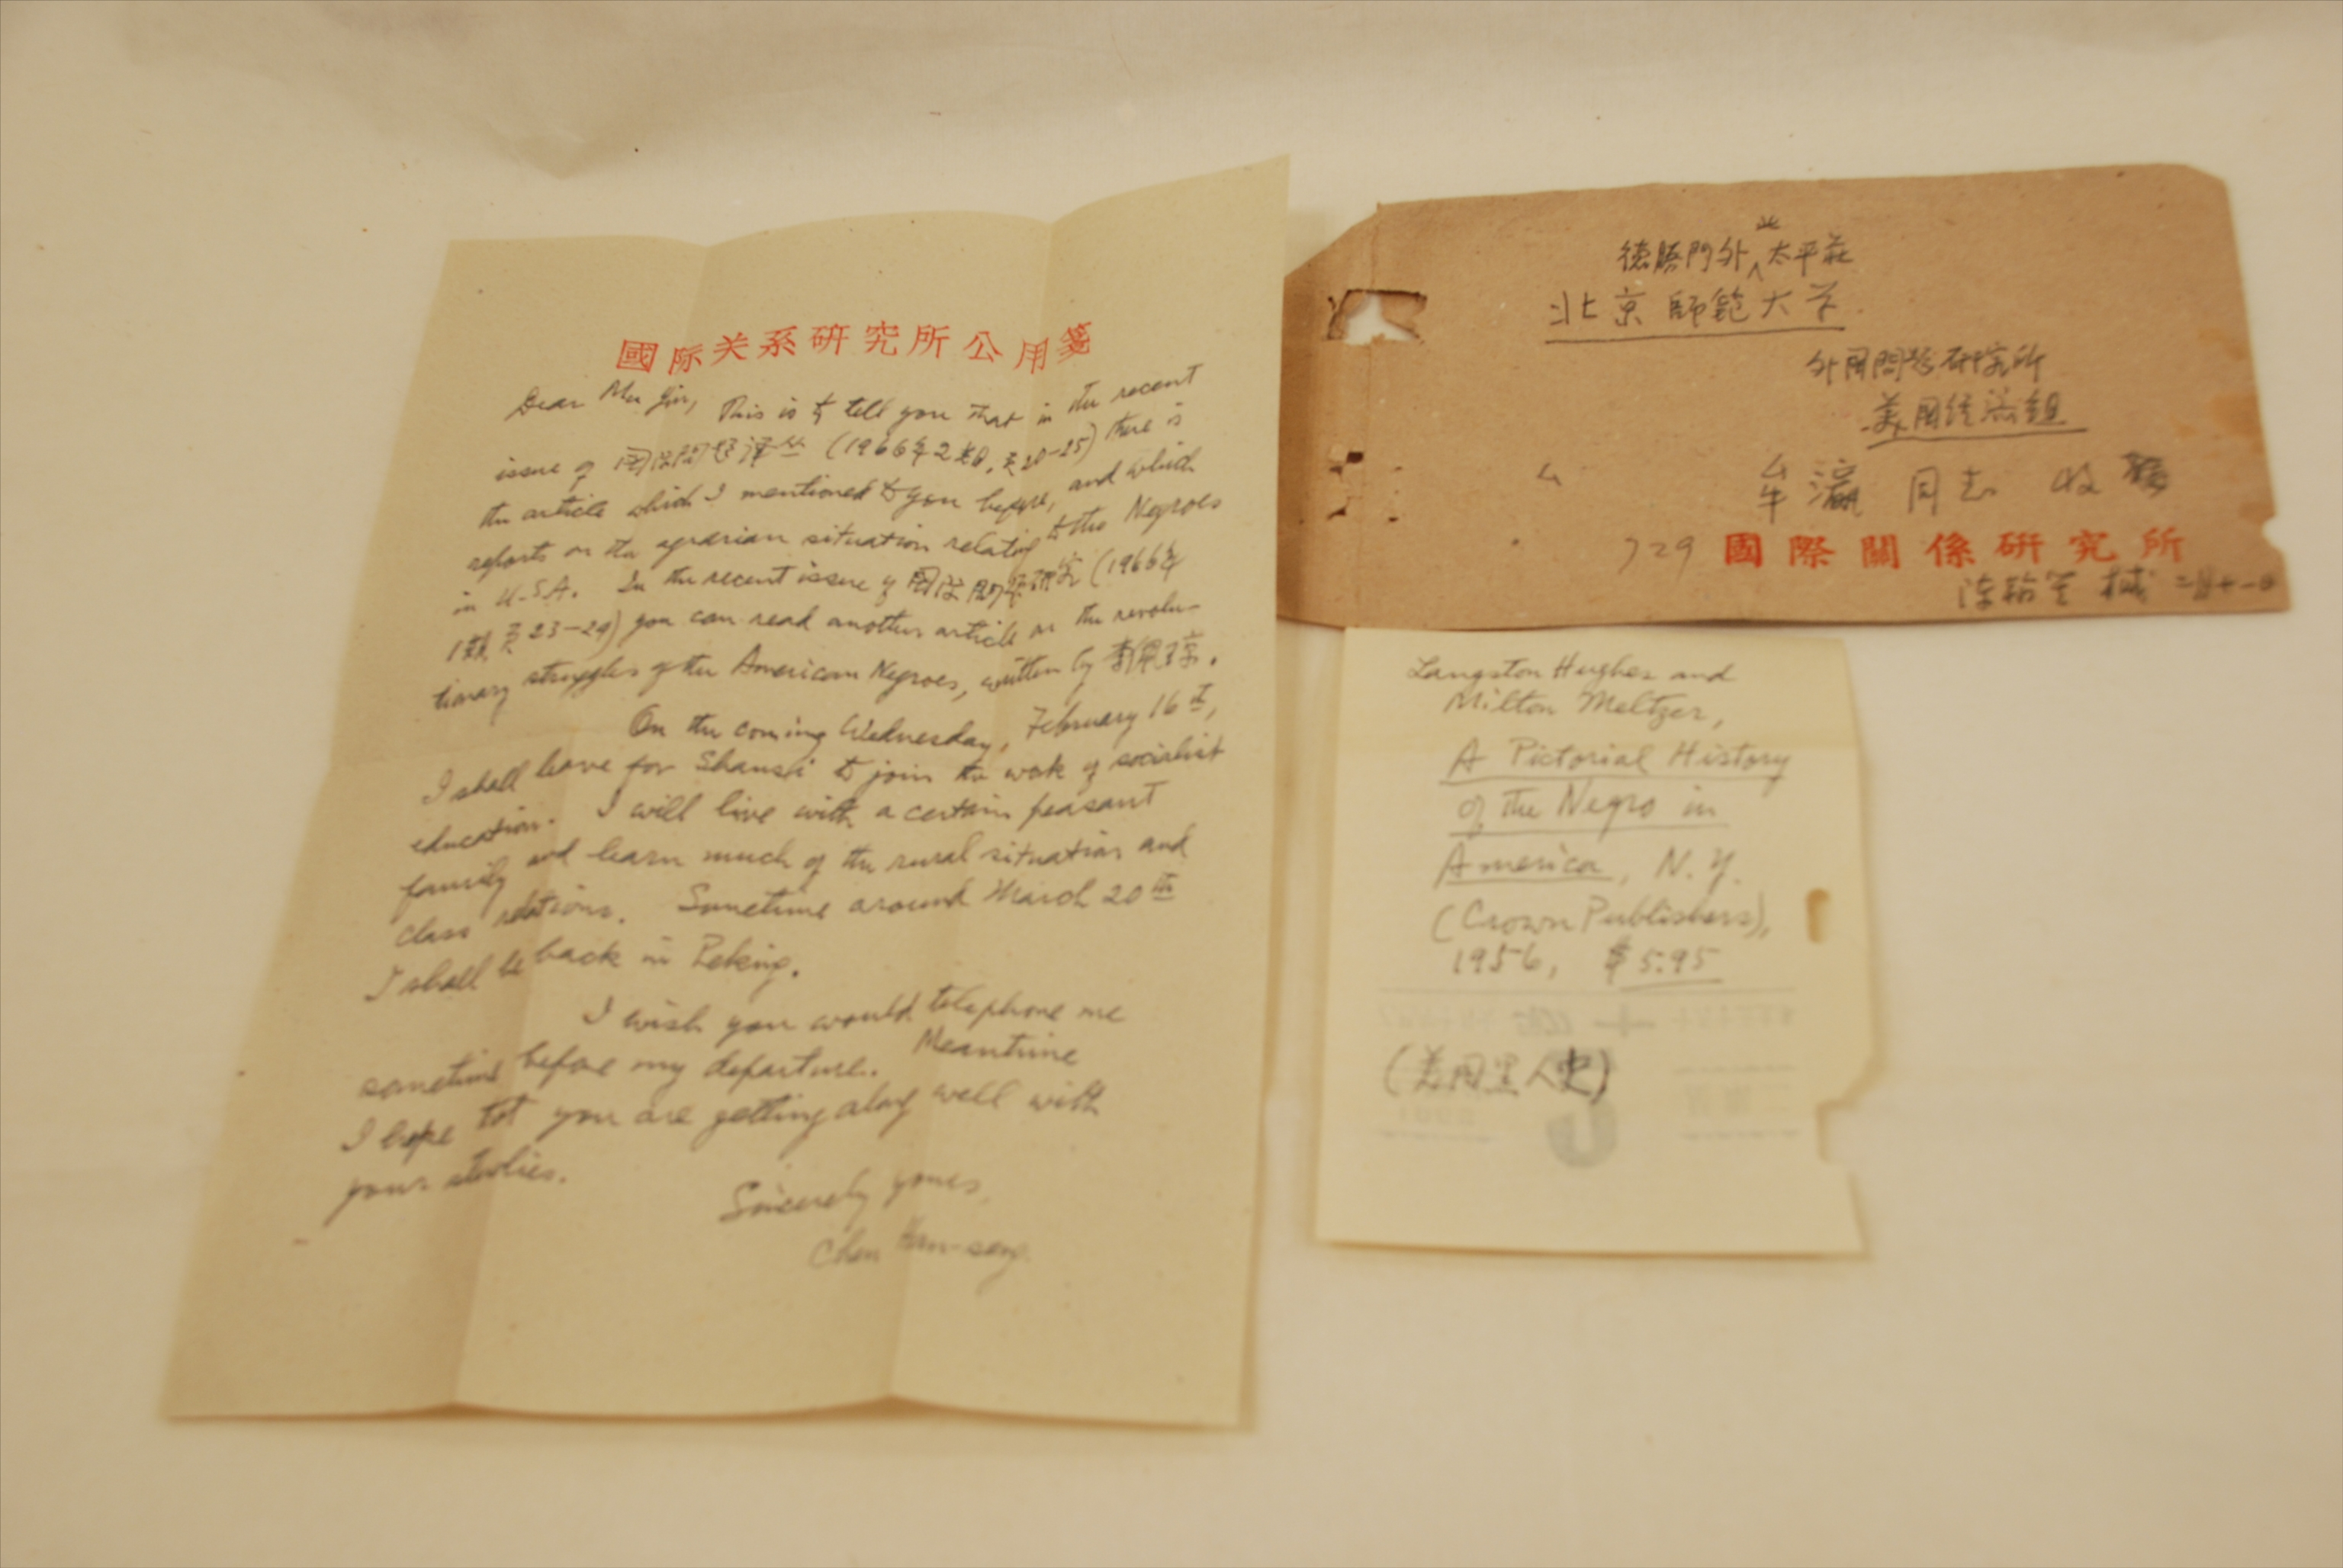 國际关系研究所公用箋
Dear Mu Yin, This is to tell you that in the recent
issue of 国际問题译丛 (1966年2期, 页20-25) there is
the article which I mentioned to you before, and which
reports on the agrarian situation relating to the Negroes
in U.S.A. In the recent issue of 国际問题研究 (1966年
1期 页23-29) you can read another article on the revolu-
tionary struggles of the American Negroes, written by
On the coming Wednesday, February 16th,
I shall leave for Shansi to join the work of socialist
education. I will live with a certain peasant
family and learn much of the rural situation and
class relations. Sometime around March 20th
I shall be back in Peking.
I wish you would telephone me
sometime before my departure. Meantime
I hope tht you are getting along well with
your studies.
Sincerely yours,
Chen Han-seng.
德勝門外北太平莊
北京師範大学
外国問题研究所
美国经济組
牟瀛 同志 收
729 國際關係研究所
陈翰笙 椷 二月十一日
Langston Hughes and
Milton Meltzer,
A Pictorial History
of the Negro in
America, N.Y.
(Crown Publishers),
1956, $5.95
(美国黑人史)